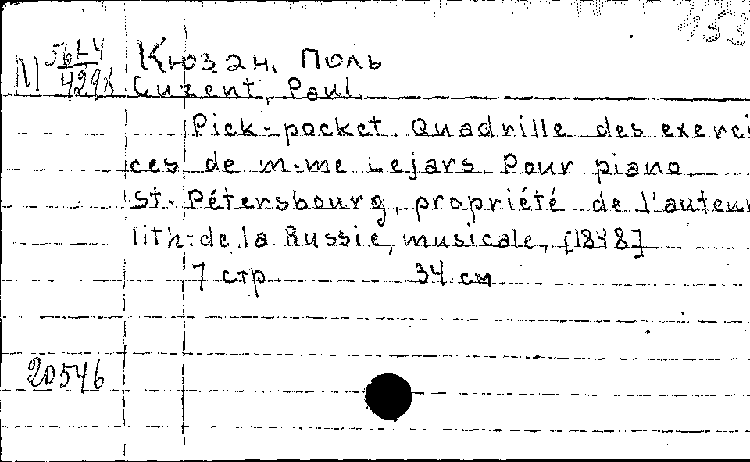 Кюзан, Поль
Cuzent, Paul
Pick-pocket. Quadrille des exerci
ces de m-me Lejars. Pour piano
St.-Pétersbourg, propriété de l'auteur
lith. de la Russie musicale, [1848]
7 стр. 34 см
20546